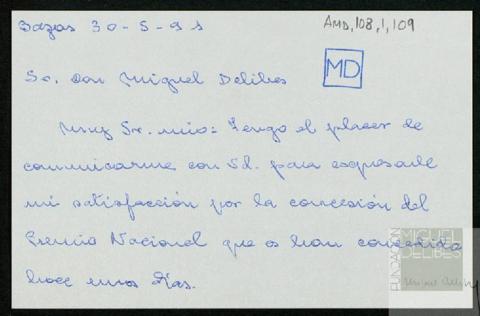 Bazas 30-5-91
AMD,108,1,109
Sr. Don Miguel Delibes
MD
Muy Sr. mio: Tengo el placer de
comunicarme con Sd. para expresarle
mi satisfacción por la concesión del
Premio Nacional que os han concedido
hace unos días.
FUNDACIÓN
MIGUEL
DELIBES